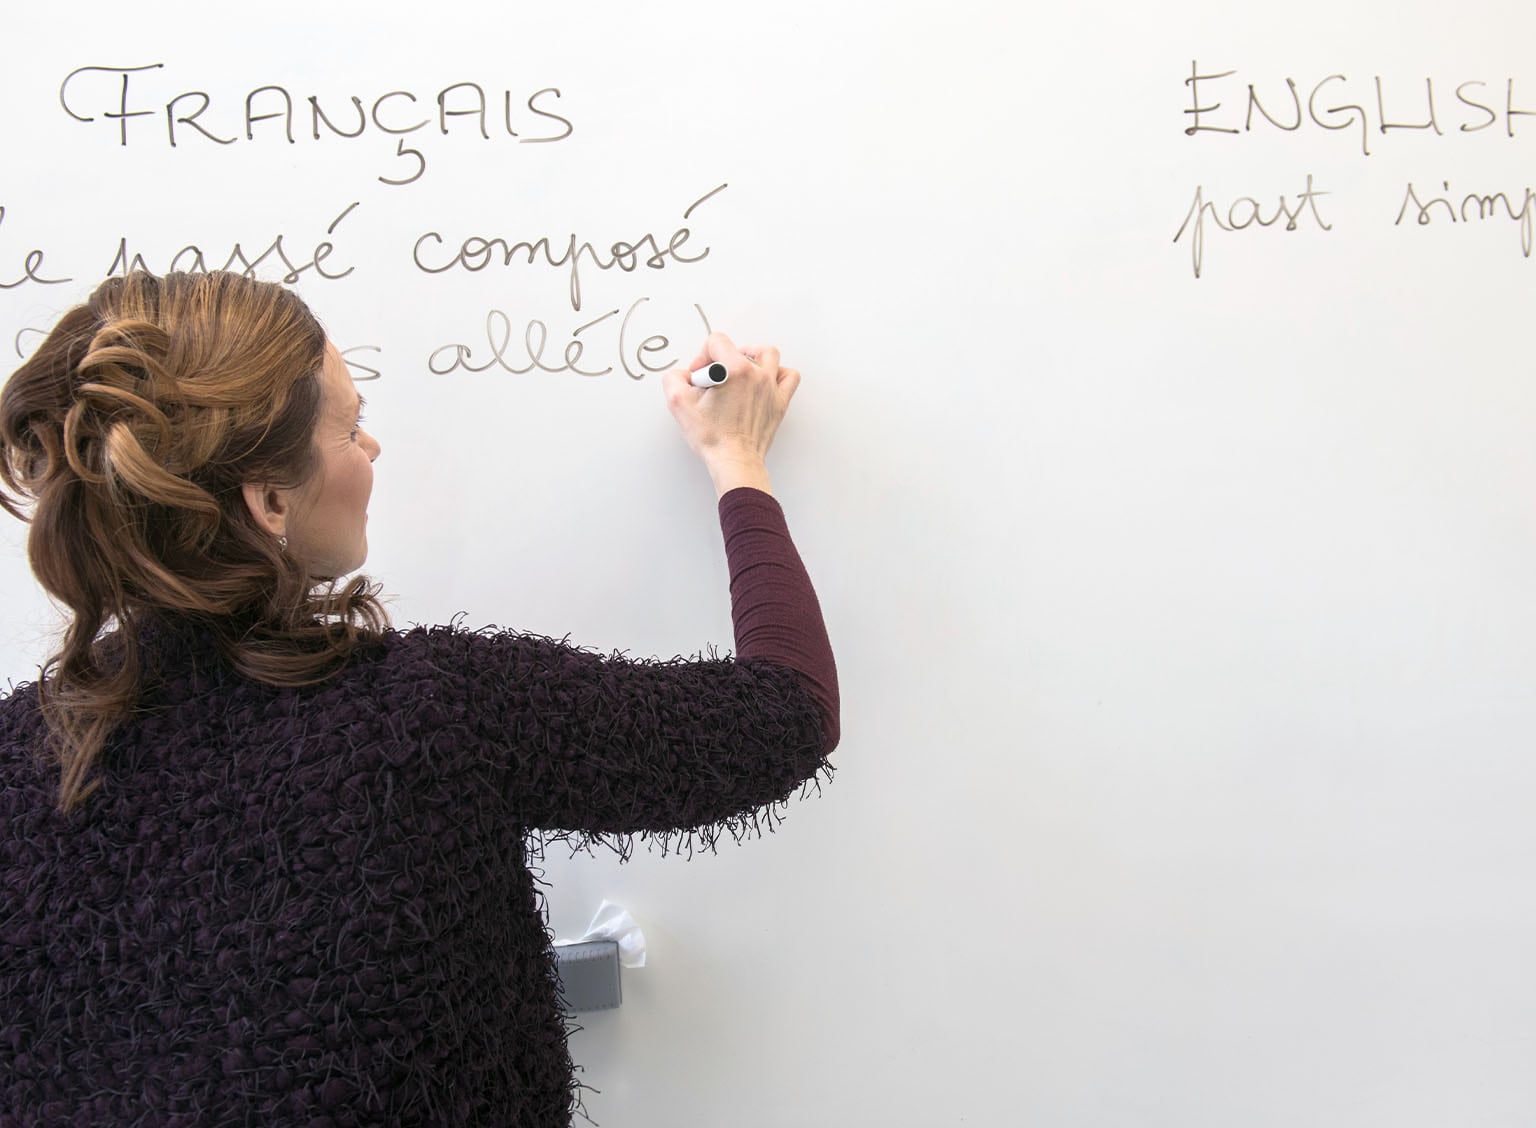 FRANÇAIS
le passé composé
allé(e)
ENGLISH
past